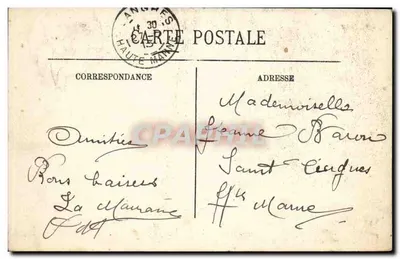 LANGRES
HAUTE MARNE
CARTE POSTALE
CORRESPONDANCE
ADRESSE
Mademoiselle
Jeanne Baron
Saint Ciergues
Hte Marne
Amitiés
Bons baisers
La Marraine